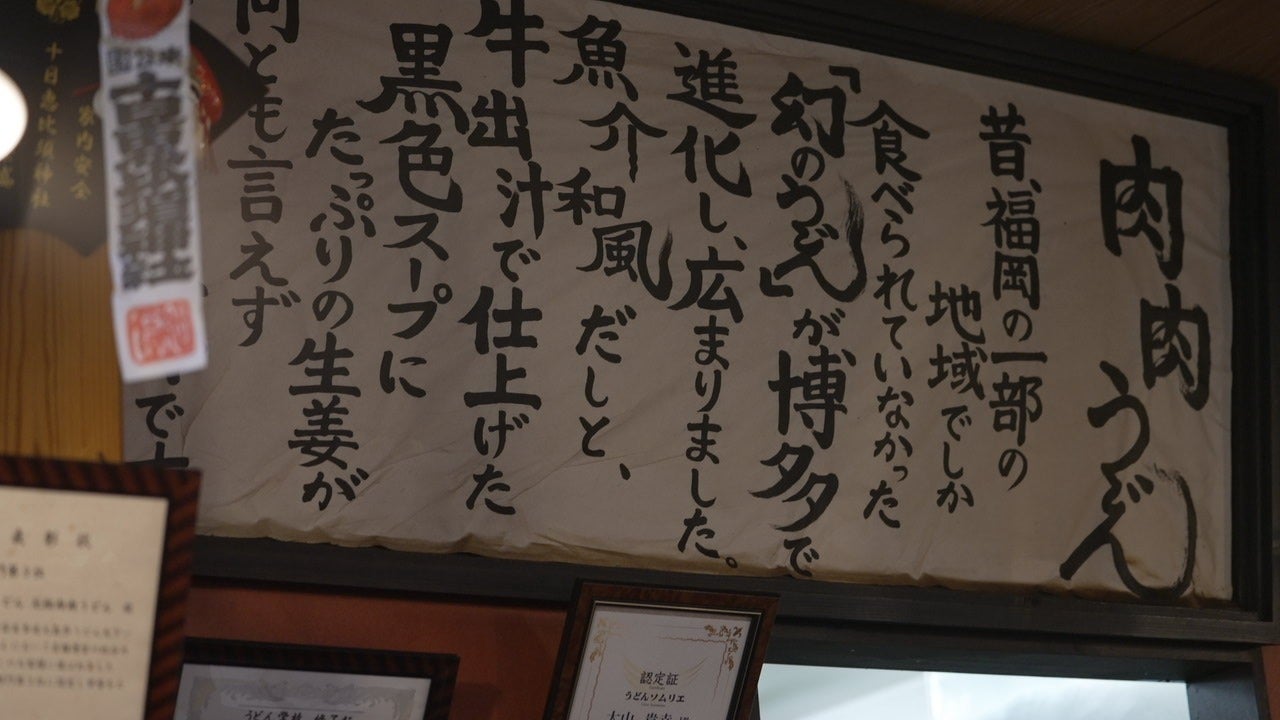 肉肉うどん
昔、福岡の一部の
地域でしか
食べられていなかった
「幻のうどん」が博多で
進化し、広まりました。
魚介和風だしと、
牛出汁で仕上げた
黒色スープに
たっぷりの生姜が
何とも言えず
十日恵比須神社
家内安全
表彰状
認定証
うどんソムリエ